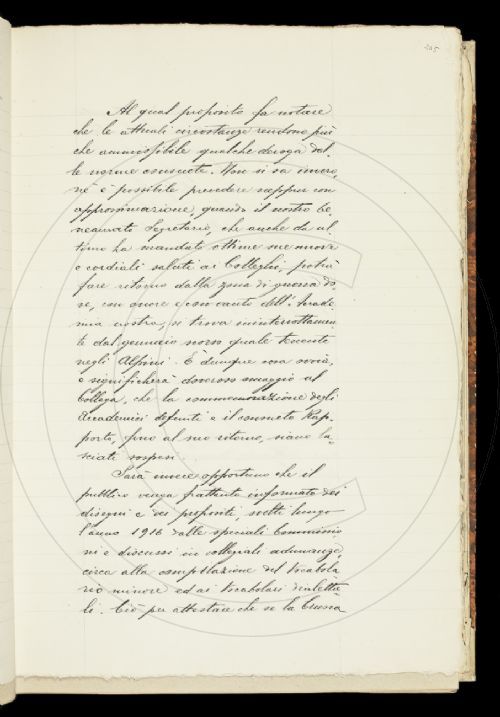 205
Al qual proposito fa notare
che le attuali circostanze rendono più
che ammissibile qualche deroga dal-
le norme consuete. Non si sa invero,
né è possibile prevedere neppur con
approssimazione, quando il nostro be-
nemerito Segretario, che anche da ul-
timo ha mandato ottime sue nuove
e cordiali saluti ai Colleghi, potrà
fare ritorno dalla zona di guerra do-
ve, con onore e con vanto dell'Accade-
mia nostra, si trova ininterrottamen-
te dal gennaio scorso quale tenente
negli Alpini. È dunque cosa ovvia,
e significherà doveroso omaggio al
Collega, che la commemorazione degli
Accademici defunti e il consueto Rap-
porto, fino al suo ritorno, siano la-
sciati sospesi.
Sarà invece opportuno che il
pubblico venga frattanto informato dei
disegni e dei propositi, svolti lungo
l'anno 1916 dalle speciali Commissio-
ni e discussi in collegiali adunanze,
circa alla compilazione del Vocabola-
rio minore ed ai Vocabolari dialetta-
li. Ciò per attestare che se la Crusca